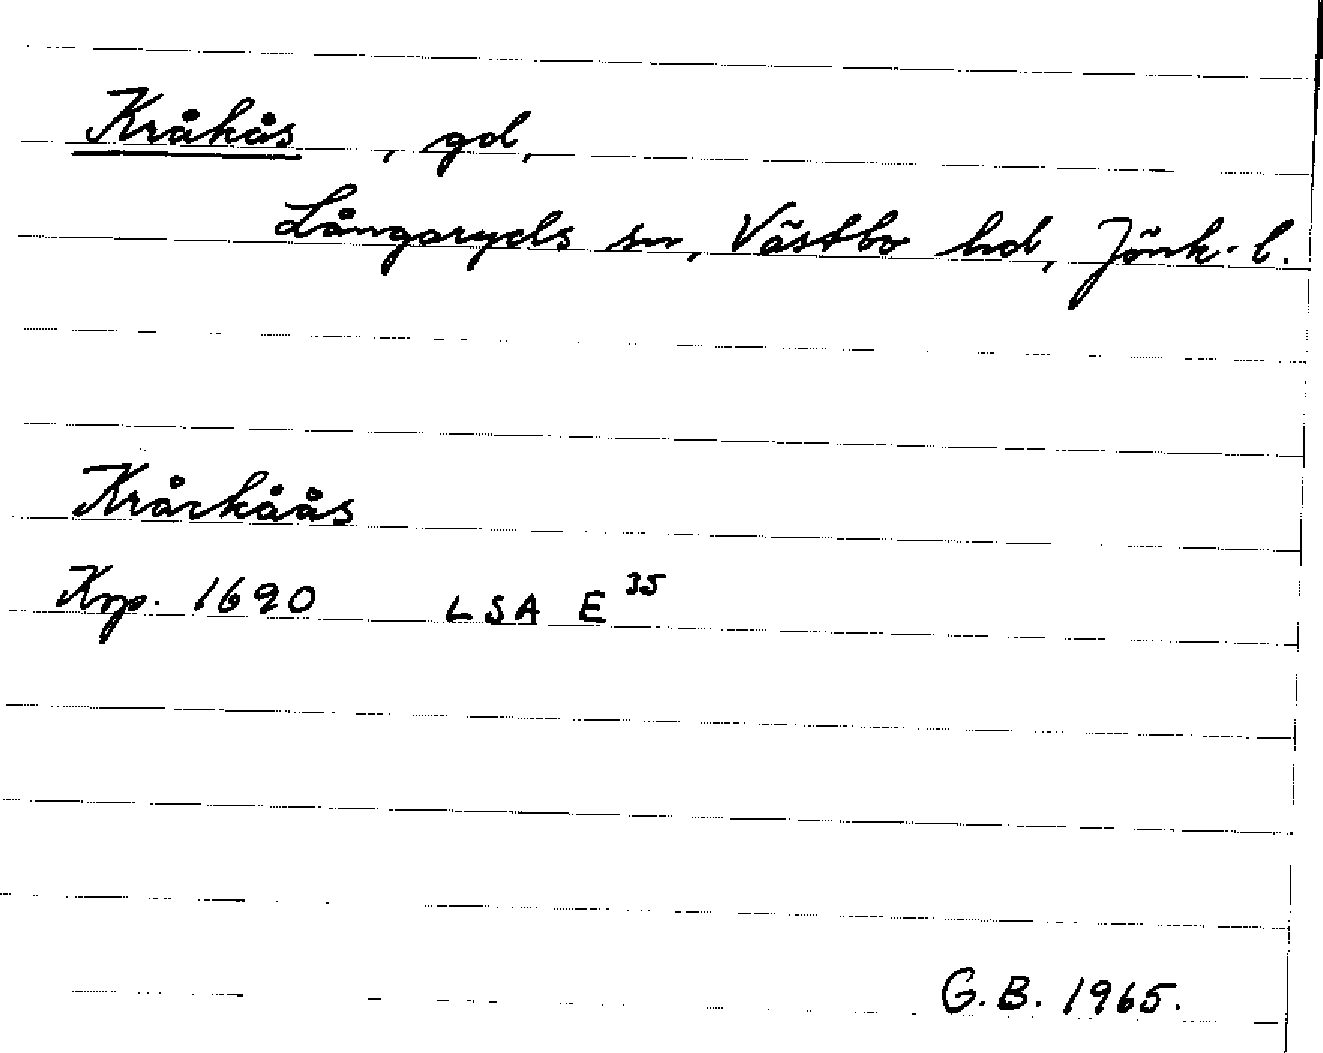 Kråkås, gd,
Långaryds sn, Västbo hd, Jönk. l.
Kråckåås
Krp. 1690 LSA E 35
G.B. 1965.